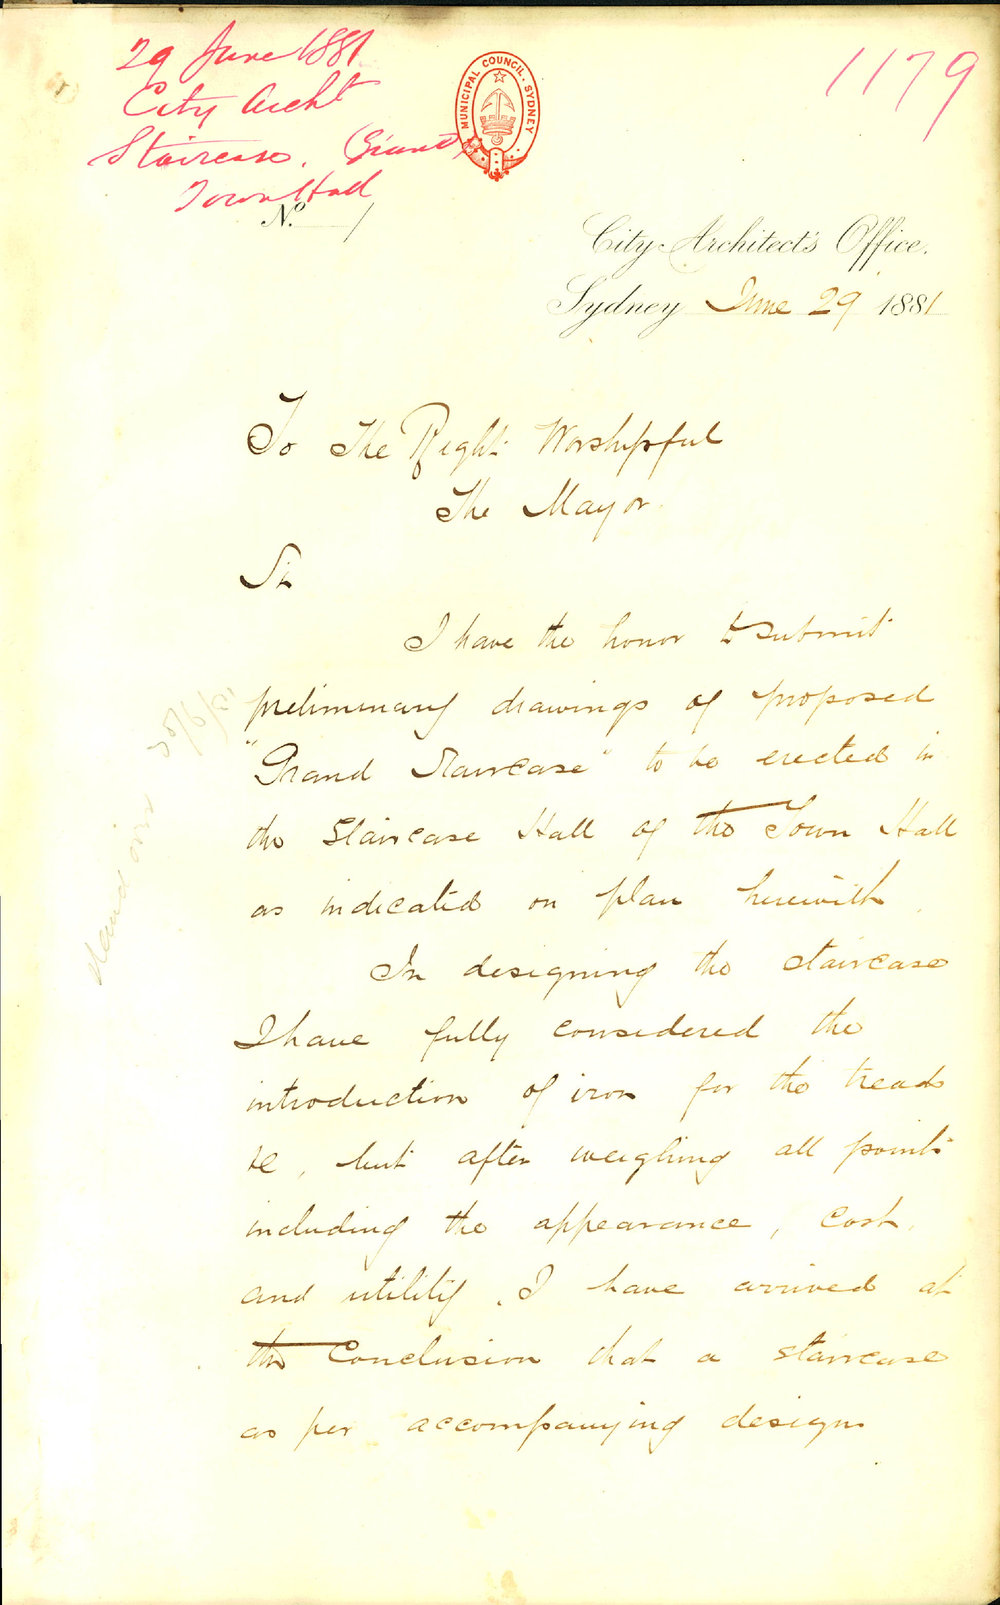 29 June 1881
City Archt
Staircase. (Grand)
Town Hall
1179
MUNICIPAL COUNCIL. SYDNEY
No. 1
City Architect's Office.
Sydney June 29 1881
To The Right Worshipful
The Mayor.
Sir
I have the honor to submit
preliminary drawings of proposed
"Grand Staircase" to be erected in
the Staircase Hall of the Town Hall
as indicated on plan herewith.
In designing the staircase
I have fully considered the
introduction of iron for the treads
&c, but after weighing all points
including the appearance, cost,
and utility, I have arrived at
the conclusion that a staircase
as per accompanying design